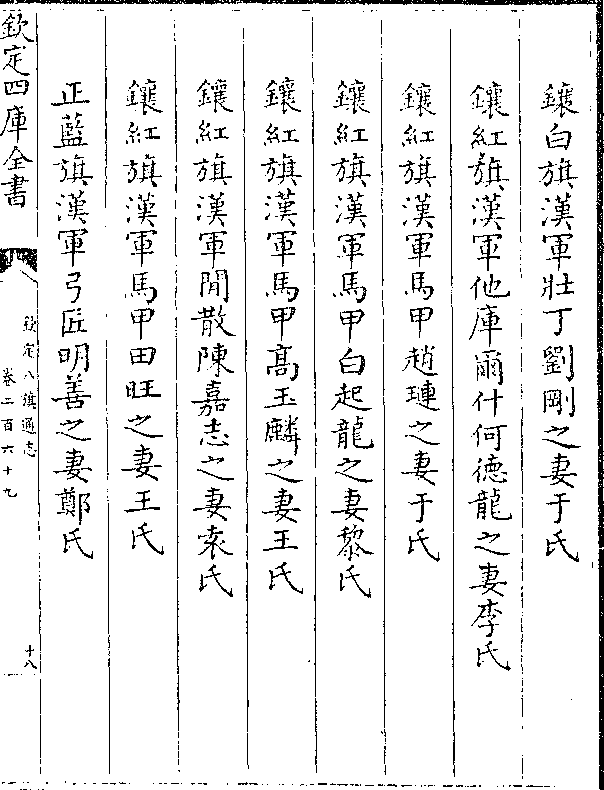 鑲白旗漢軍壯丁劉剛之妻于氏
鑲紅旗漢軍他庫爾什何德龍之妻李氏
鑲紅旗漢軍馬甲趙璉之妻于氏
鑲紅旗漢軍馬甲白起龍之妻黎氏
鑲紅旗漢軍馬甲高玉麟之妻王氏
鑲紅旗漢軍閒散陳嘉志之妻袁氏
鑲紅旗漢軍馬甲田旺之妻王氏
正藍旗漢軍弓匠明善之妻鄭氏
欽定四庫全書
欽定八旗通志
卷二百六十九
十八